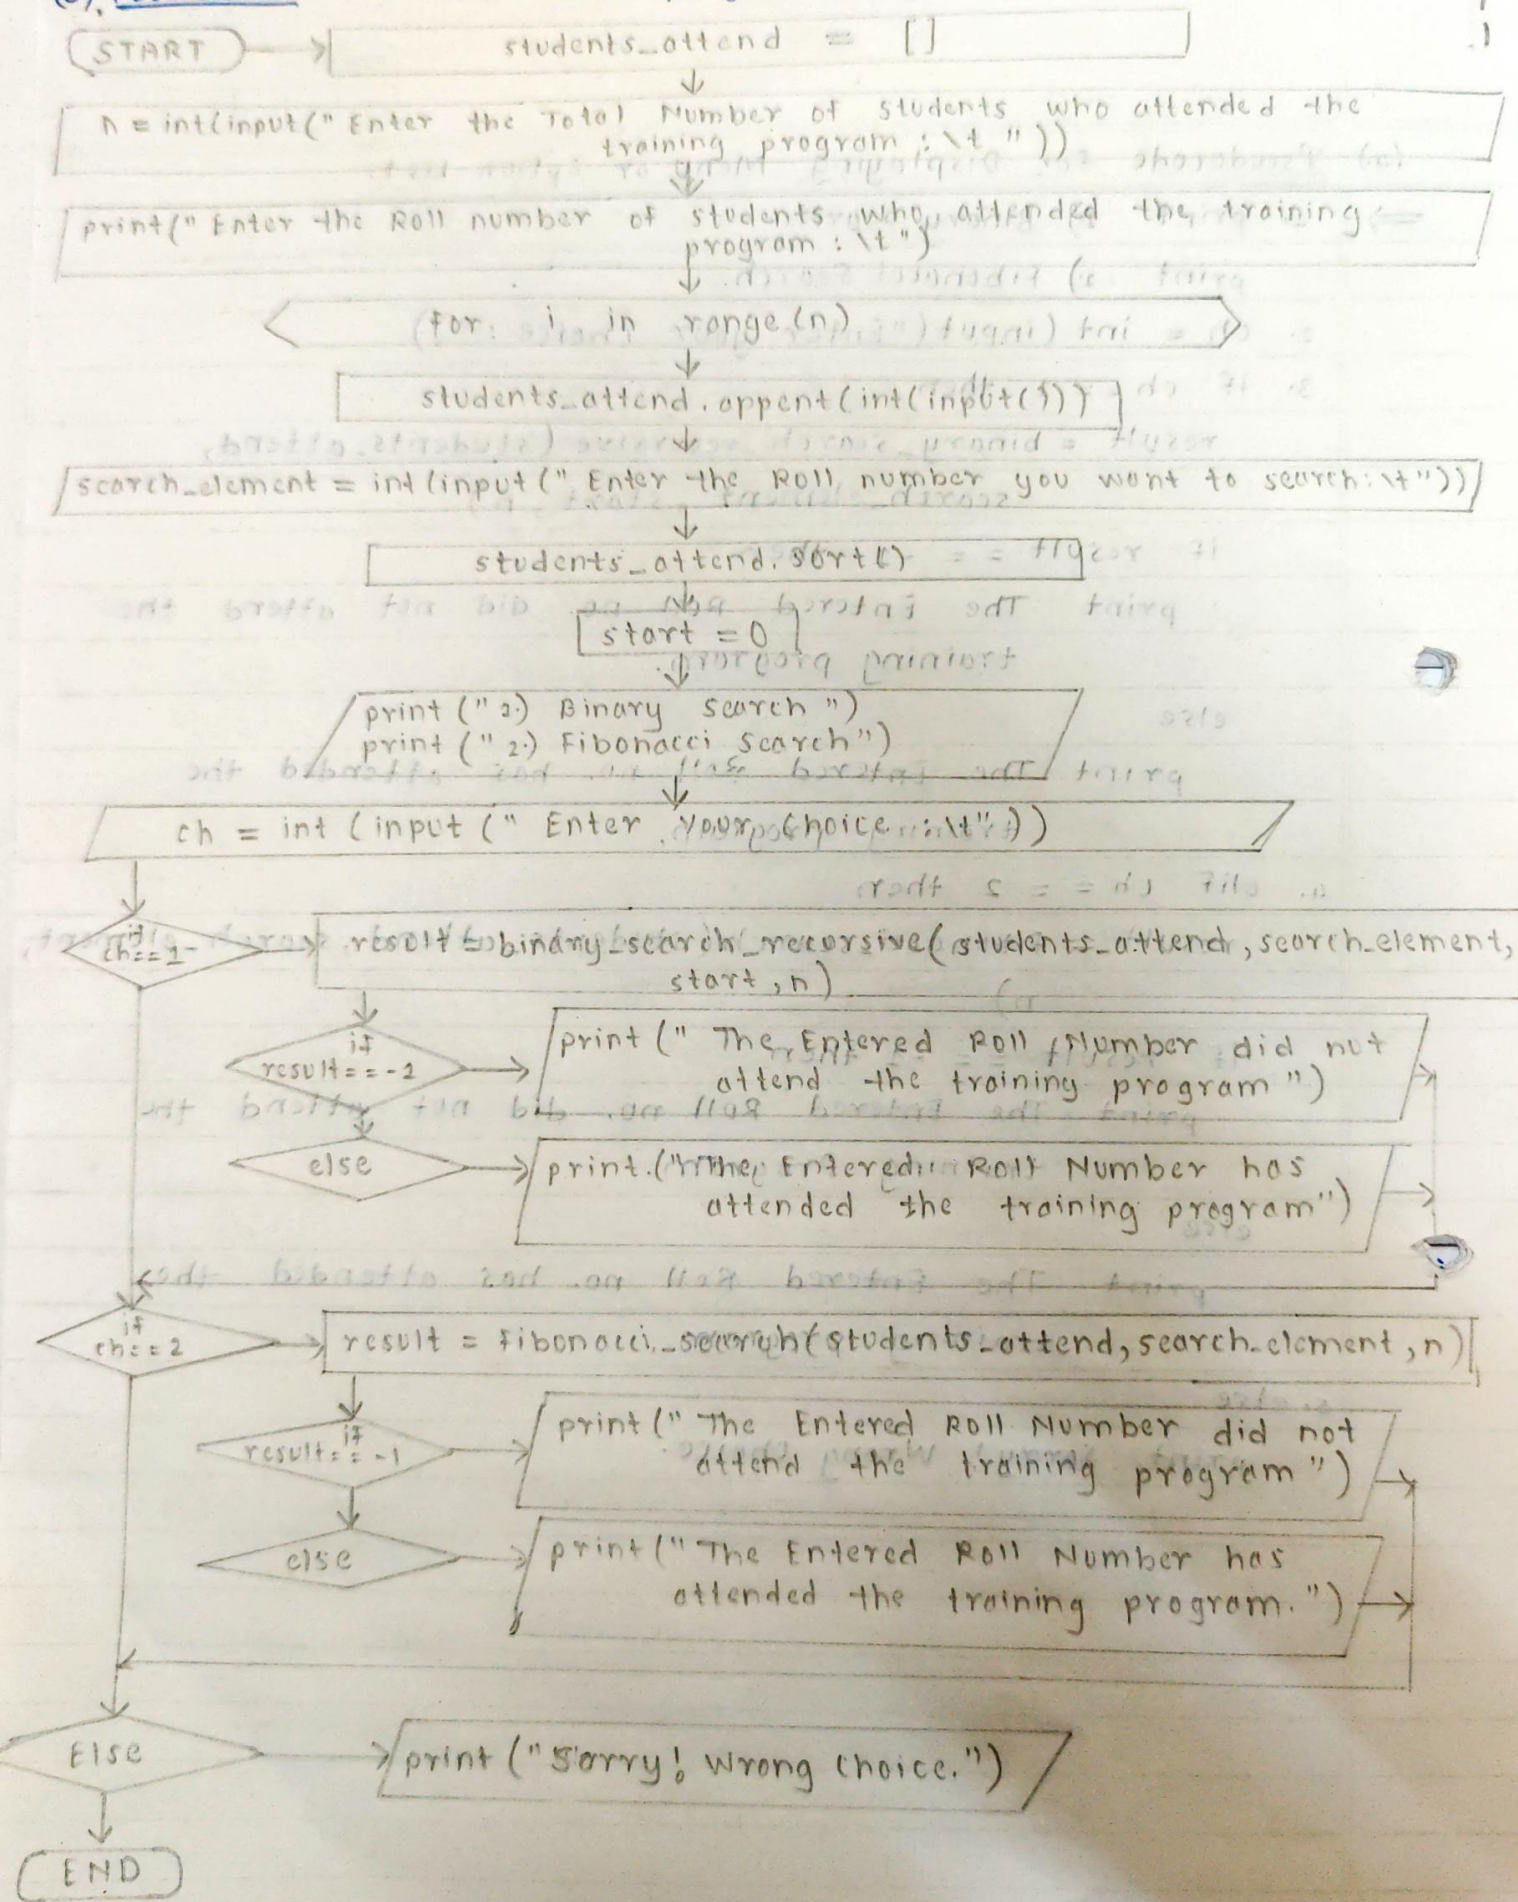 START
students_attend = []
n = int(input(" Enter the Total Number of students who attended the
training program : \t "))
print(" Enter the Roll number of students who attended the training
program : \t ")
for i in range(n)
students_attend.appent(int(input()))
search_element = int(input(" Enter the Roll number you want to search:\t"))
students_attend.sort()
start = 0
print (" 1.) Binary Search ")
print (" 2.) Fibonacci Search")
ch = int (input (" Enter your choice :\t"))
if
ch==1
result = binary_search_recursive(students_attend, search_element,
start, n)
if
result==-1
print (" The Entered Roll Number did not
attend the training program ")
else
print ("The Entered Roll Number has
attended the training program")
if
ch==2
result = fibonacci_search(students_attend, search_element, n)
if
result==-1
print (" The Entered Roll Number did not
attend the training program ")
else
print (" The Entered Roll Number has
attended the training program. ")
Else
print ("Sorry! Wrong Choice.")
END